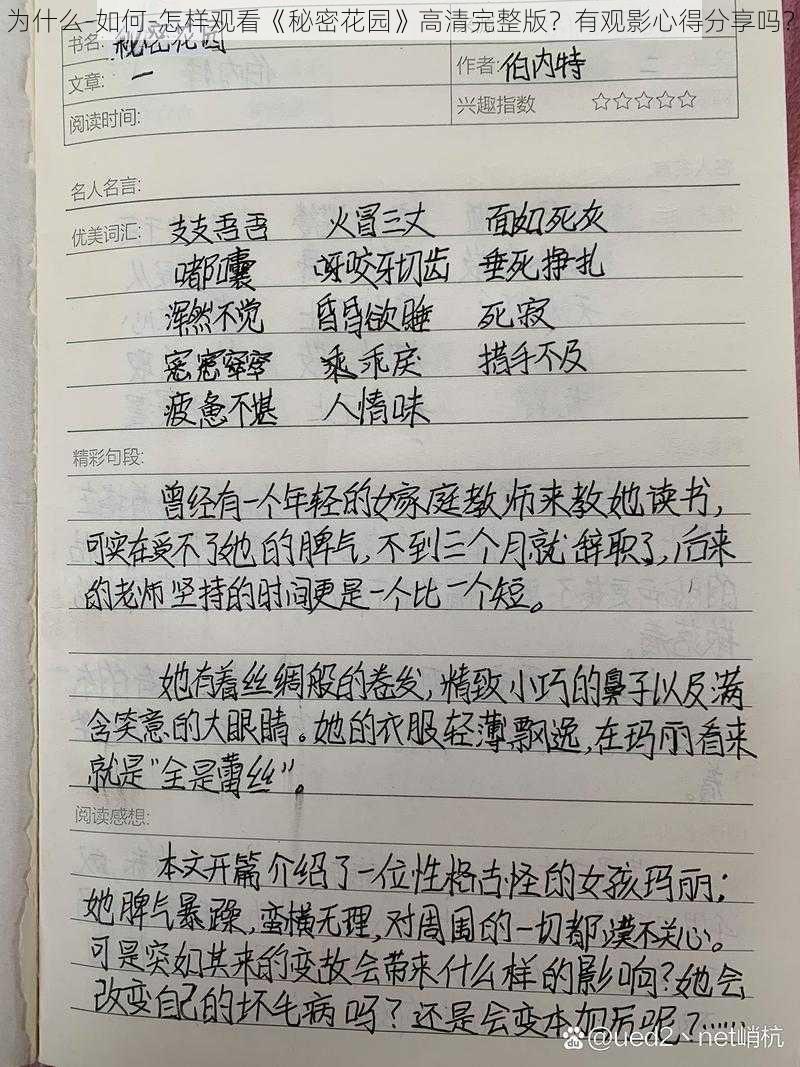 为什么-如何-怎样观看《秘密花园》高清完整版？有观影心得分享吗？
书名: 秘密花园
文章: 一
作者: 伯内特
阅读时间:
兴趣指数 ☆☆☆☆☆
名人名言:
优美词汇: 支支吾吾 火冒三丈 面如死灰
嘟囔 呀咬牙切齿 垂死挣扎
浑然不觉 昏昏欲睡 死寂
窸窸窣窣 乖戾 措手不及
疲惫不堪 人情味
精彩句段:
曾经有一个年轻的女家庭教师来教她读书,
可实在受不了她的脾气,不到三个月就辞职了,后来
的老师坚持的时间更是一个比一个短。
她有着丝绸般的卷发,精致小巧的鼻子以及满
含笑意的大眼睛。她的衣服轻薄飘逸,在玛丽看来
就是"全是蕾丝"。
阅读感想:
本文开篇介绍了一位性格古怪的女孩玛丽;
她脾气暴躁,蛮横无理,对周围的一切都漠不关心。
可是突如其来的变故会带来什么样的影响?她会
改变自己的坏毛病吗?还是会变本加厉呢?……
@ued2丶net峭杭